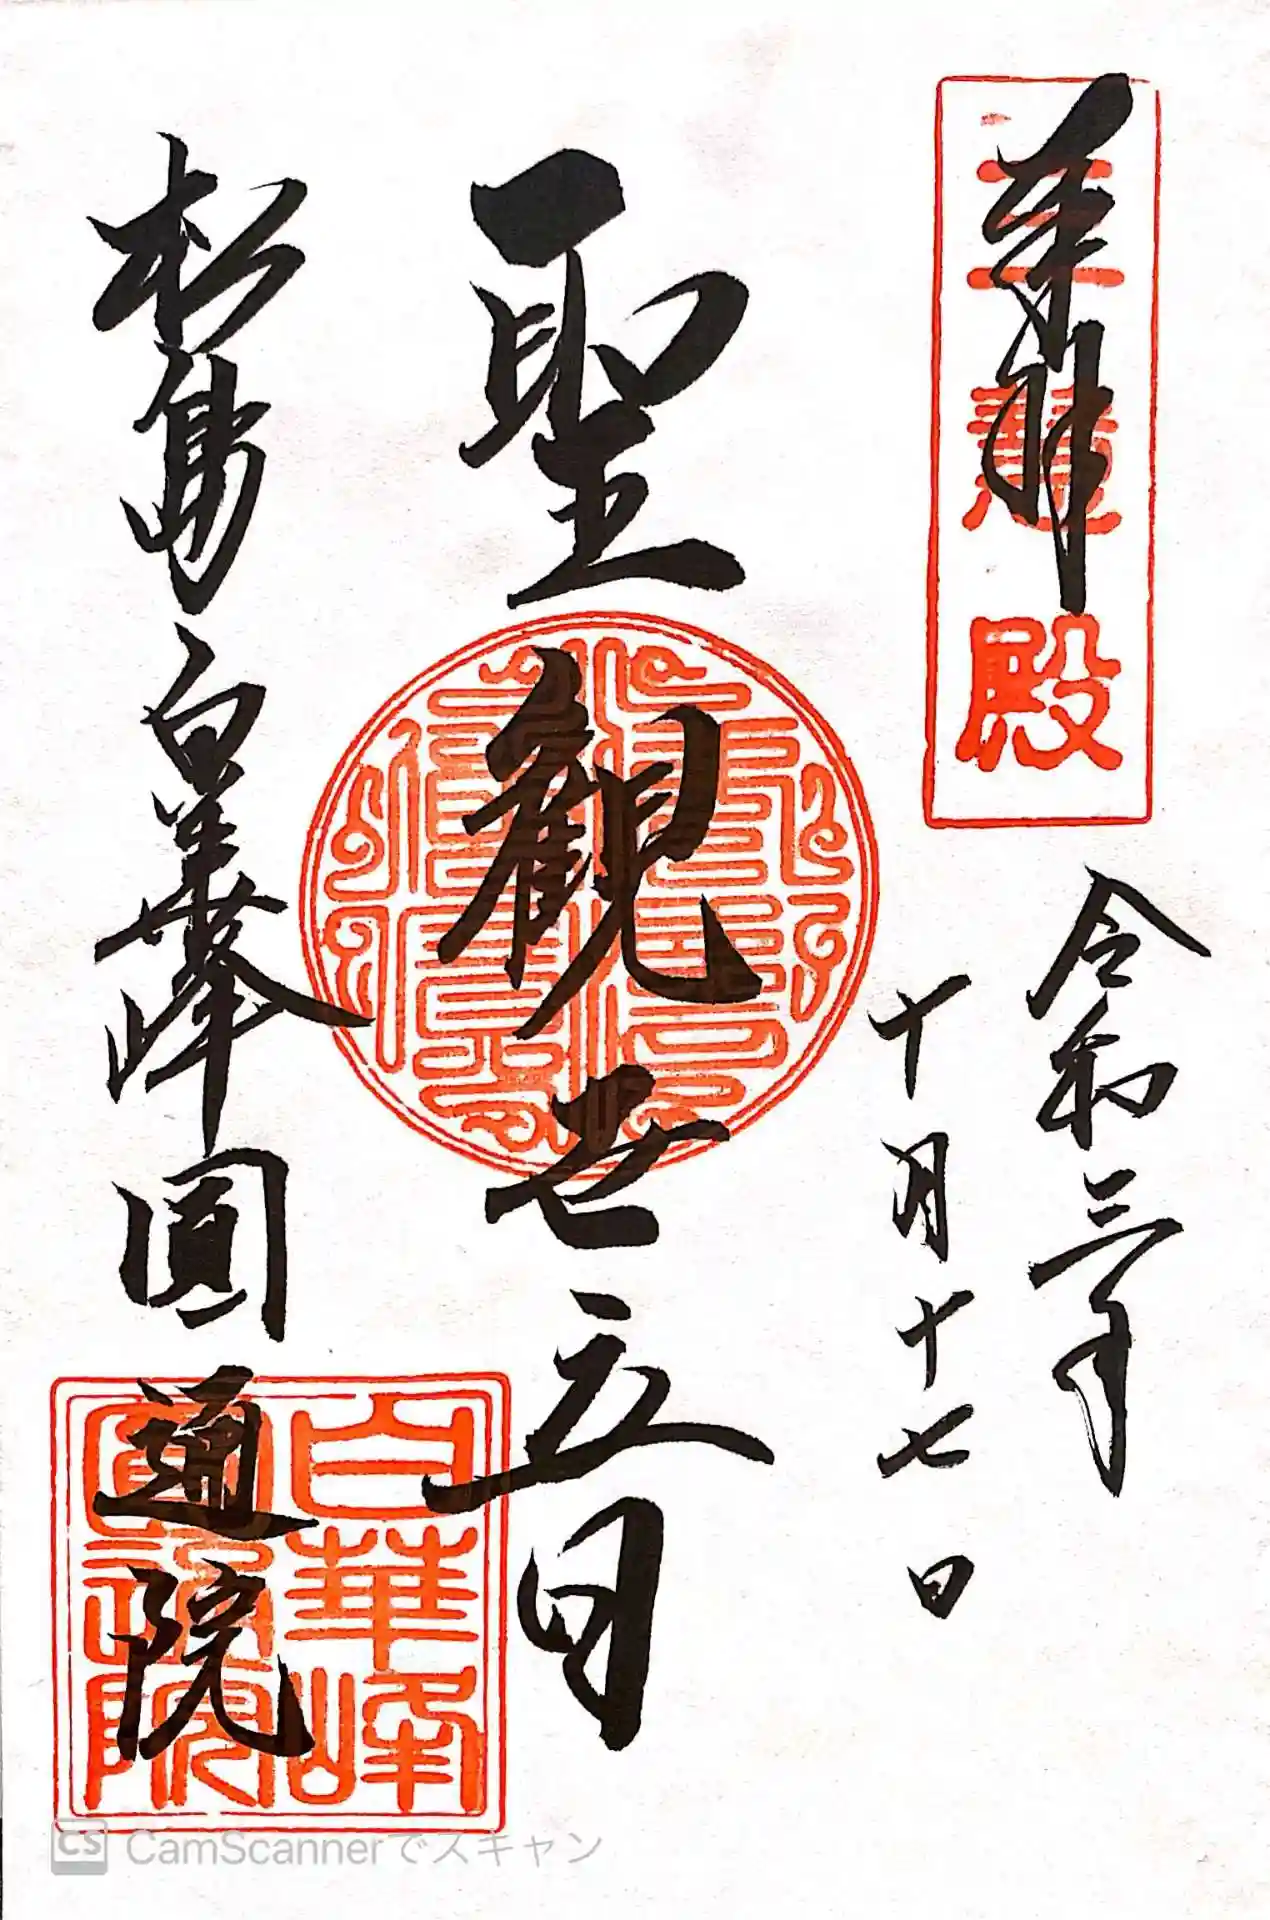 奉拝
三慧殿
令和三年
十月十七日
聖観世音
松島白華峰圓通院
白華峰
圓通院
CS CamScannerでスキャン